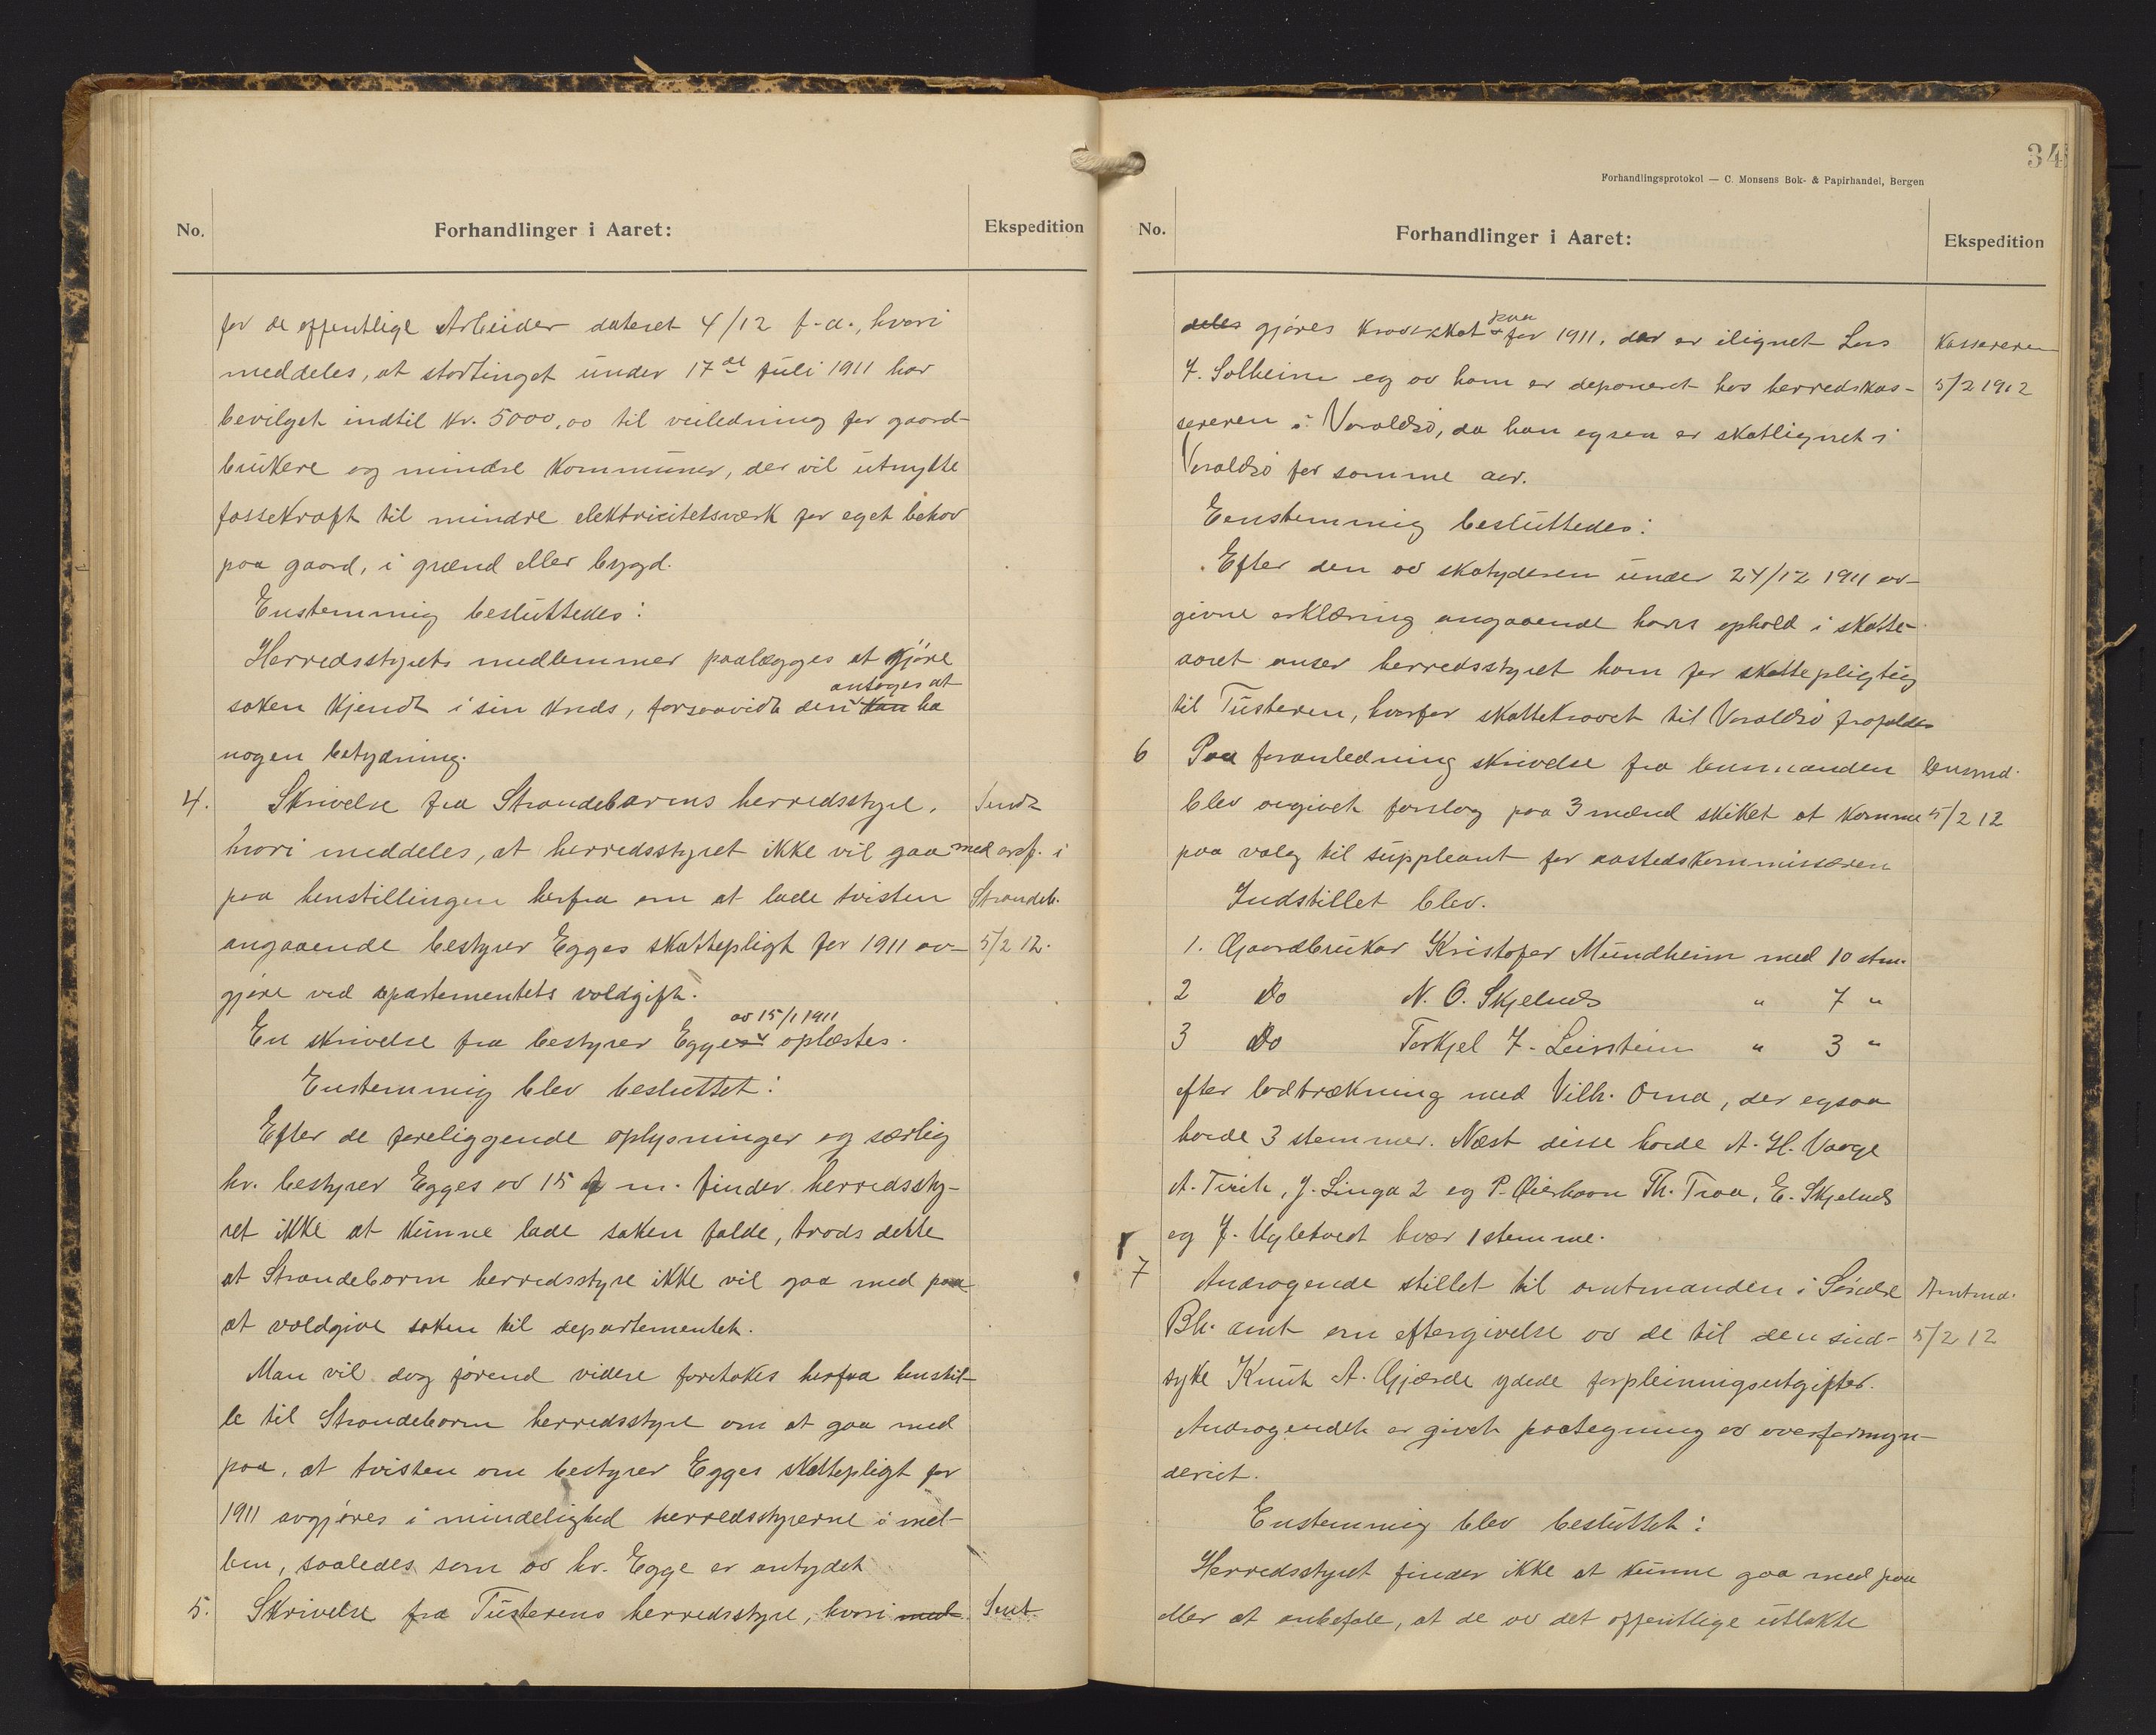 No.
Forhandlinger i Aaret:
Ekspedition
for de offentlige Arbeider dateret 4/12 f.a., hvori
meddeles, at stortinget under 17de juli 1911 har
bevilget indtil kr. 5000,00 til veiledning for gaard-
brukere og mindre kommuner, der vil utnytte
fossekraft til mindre elektricitetsværk for eget behov
paa gaard, i grænd eller bygd.
Enstemmig besluttedes:
Herredsstyrets medlemmer paalægges at gjøre
antages at
saken kjendt i sin kreds, forsaavidt den kan ha
nogen betydning.
4. Skrivelse fra Strandebarms herredsstyre, Sendt
hvori meddeles, at herredsstyret ikke vil gaa med ordf. i
paa henstillingen herfra om at lade tvisten Strandeb.
angaaende bestyrer Egges skattepligt for 1911 av- 5/2 12.
gjøre ved departementets voldgift.
av 15/1 1911
En skrivelse fra bestyrer Egges oplæstes.
Enstemmig blev besluttet:
Efter de foreliggende oplysninger og særlig
hr. bestyrer Egges av 15 f m. finder herredssty-
ret ikke at kunne lade saken falde, trods dette
at Strandebarm herredsstyre ikke vil gaa med paa
at voldgive saken til departementet.
Man vil dog førend videre foretakes herfra henstil-
le til Strandebarm herredsstyre om at gaa med
paa, at tvisten om bestyrer Egges skattepligt for
1911 avgjøres i mindelighed herredsstyrerne i mel-
lem, saaledes som av hr. Egge er antydet
5. Skrivelse fra Tusterens herredsstyre, hvori med- Sent
34
Forhandlingsprotokol — C. Monsens Bok- & Papirhandel, Bergen
No.
Forhandlinger i Aaret:
Ekspedition
paa
deles gjøres krav skat for 1911, der er ilignet Lars Kassereren
J. Solheim og av ham er deponeret hos herredskas- 5/2 1912
sereren i Varaldsø, da han ogsaa er skatlignet i
Varaldsø for samme aar.
Eenstemmig besluttedes:
Efter den av skatyderen under 24/12 1911 av-
givne erklæring angaaende hans ophold i skatte-
aaret anser herredsstyret ham for skattepligtig
til Tusteren, hvorfor skattekravet til Varaldsø frafaldes
6 Paa foranledning skrivelse fra lensmanden lensmd.
blev avgivet forslag paa 3 mænd skiket at komme 5/2 12
paa valg til suppleant for aastedskommissæren
Indstillet blev.
1. Gaardbruker Kristofer Mundheim med 10 stm.
2 Do N. O. Skjelnes " 7 "
3 Do Torkjel J. Leirstein " 3 "
efter lodtrækning med Vilh. Oma, der ogsaa
havde 3 stemmer. Næst disse havde A. H. Vaage
A. Teigh, J. Linga 2 og P. Øierhavn Th. Traa, E. Skjelnes
og J. Ugletvedt hver 1 stemme.
7 Andragende stillet til amtmanden i Søndre Amtmd.
Bh. amt om eftergivelse av de til den sind- 5/2 12
syke Knut A. Gjærde ydede forpleiningsutgifter.
Andragendet er givet paategning av overformyn-
deriet.
Enstemmig blev besluttet:
Herredsstyret finder ikke at kunne gaa med paa
eller at anbefale, at de av det offentlige utlakte